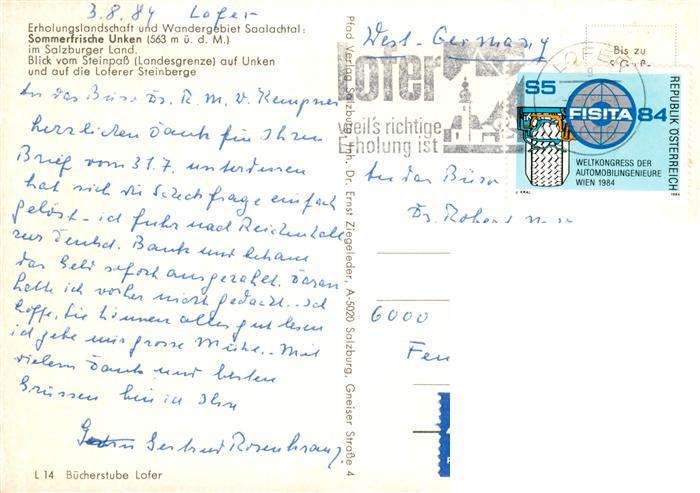 3.8.84 Lofer
Erholungslandschaft und Wandergebiet Saalachtal:
Sommerfrische Unken (563 m ü. d. M.)
im Salzburger Land.
Blick vom Steinpaß (Landesgrenze) auf Unken
und auf die Loferer Steinberge
An das Büro Dr. R. M. v. Kempner
herzlichen Dank für Ihren
Brief vom 31.7. unterdessen
hat sich die Scheckfrage einfach
gelöst - ich fuhr nach Reichenhall
zur Deutsch. Bank und bekam
das Geld sofort ausgezahlt. Daran
hatte ich vorher nicht gedacht. Ich
hoffe, Sie können alles gut lesen
ich gebe mir grosse Mühe. Mit
vielem Dank und besten
Grüssen bin ich Ihre
Gertrud Rosenkranz
L 14 Bücherstube Lofer
Pfad Verlag Salzburg, Inh. Dr. Ernst Ziegeleder, A-5020 Salzburg, Gneiser Straße 4
West-Germany
Lofer
weil's richtige
Erholung ist
LOFER
Bis zu
S5
FISITA 84
WELTKONGRESS DER
AUTOMOBILINGENIEURE
WIEN 1984
REPUBLIK ÖSTERREICH
1984
An das Büro
Dr. Robert
6000